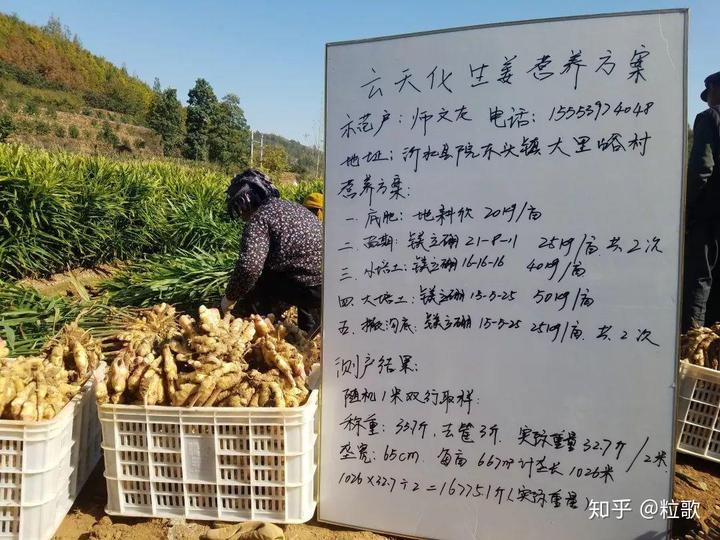 云天化生姜营养方案
示范户：师文友 电话：15553974048
地址：沂水县院东头镇大里峪村
营养方案：
一. 底肥：地料欣 20kg/亩
二. 苗期：镁立硼 21-8-11 25kg/亩. 共2次
三. 小培土：镁立硼 16-16-16 40kg/亩
四. 大培土：镁立硼 15-5-25 50kg/亩
五. 搬沟底：镁立硼 15-5-25 25kg/亩. 共2次
测产结果：
随机1米双行取样：
称重：35.7斤，去筐3斤. 实际重量32.7斤/2米
垄宽：65cm. 每亩667m²计垄长1026米
1026×32.7÷2=16775.1斤（实际重量）
知乎 @粒歌